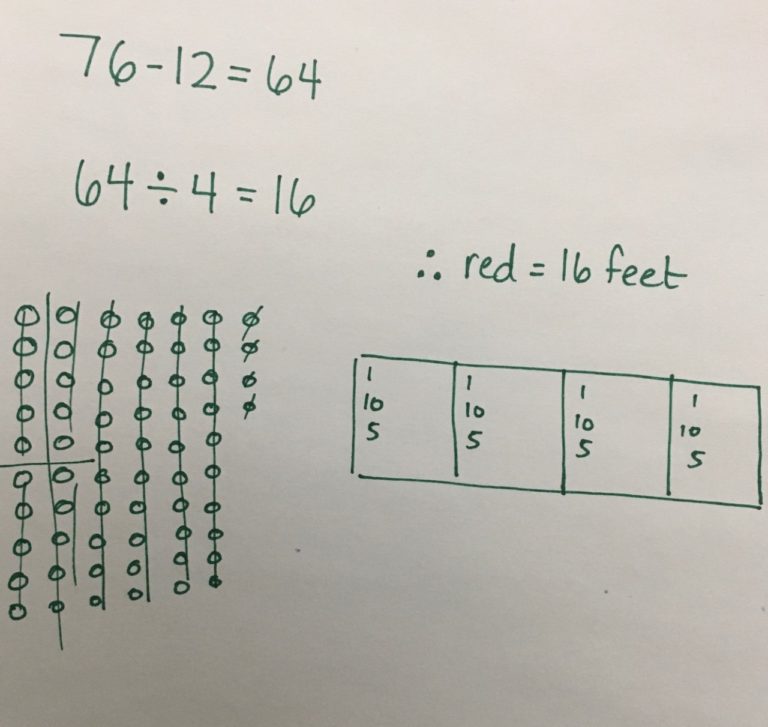 76-12=64
64÷4=16
∴ red = 16 feet
1 1 1 1
10 10 10 10
5 5 5 5